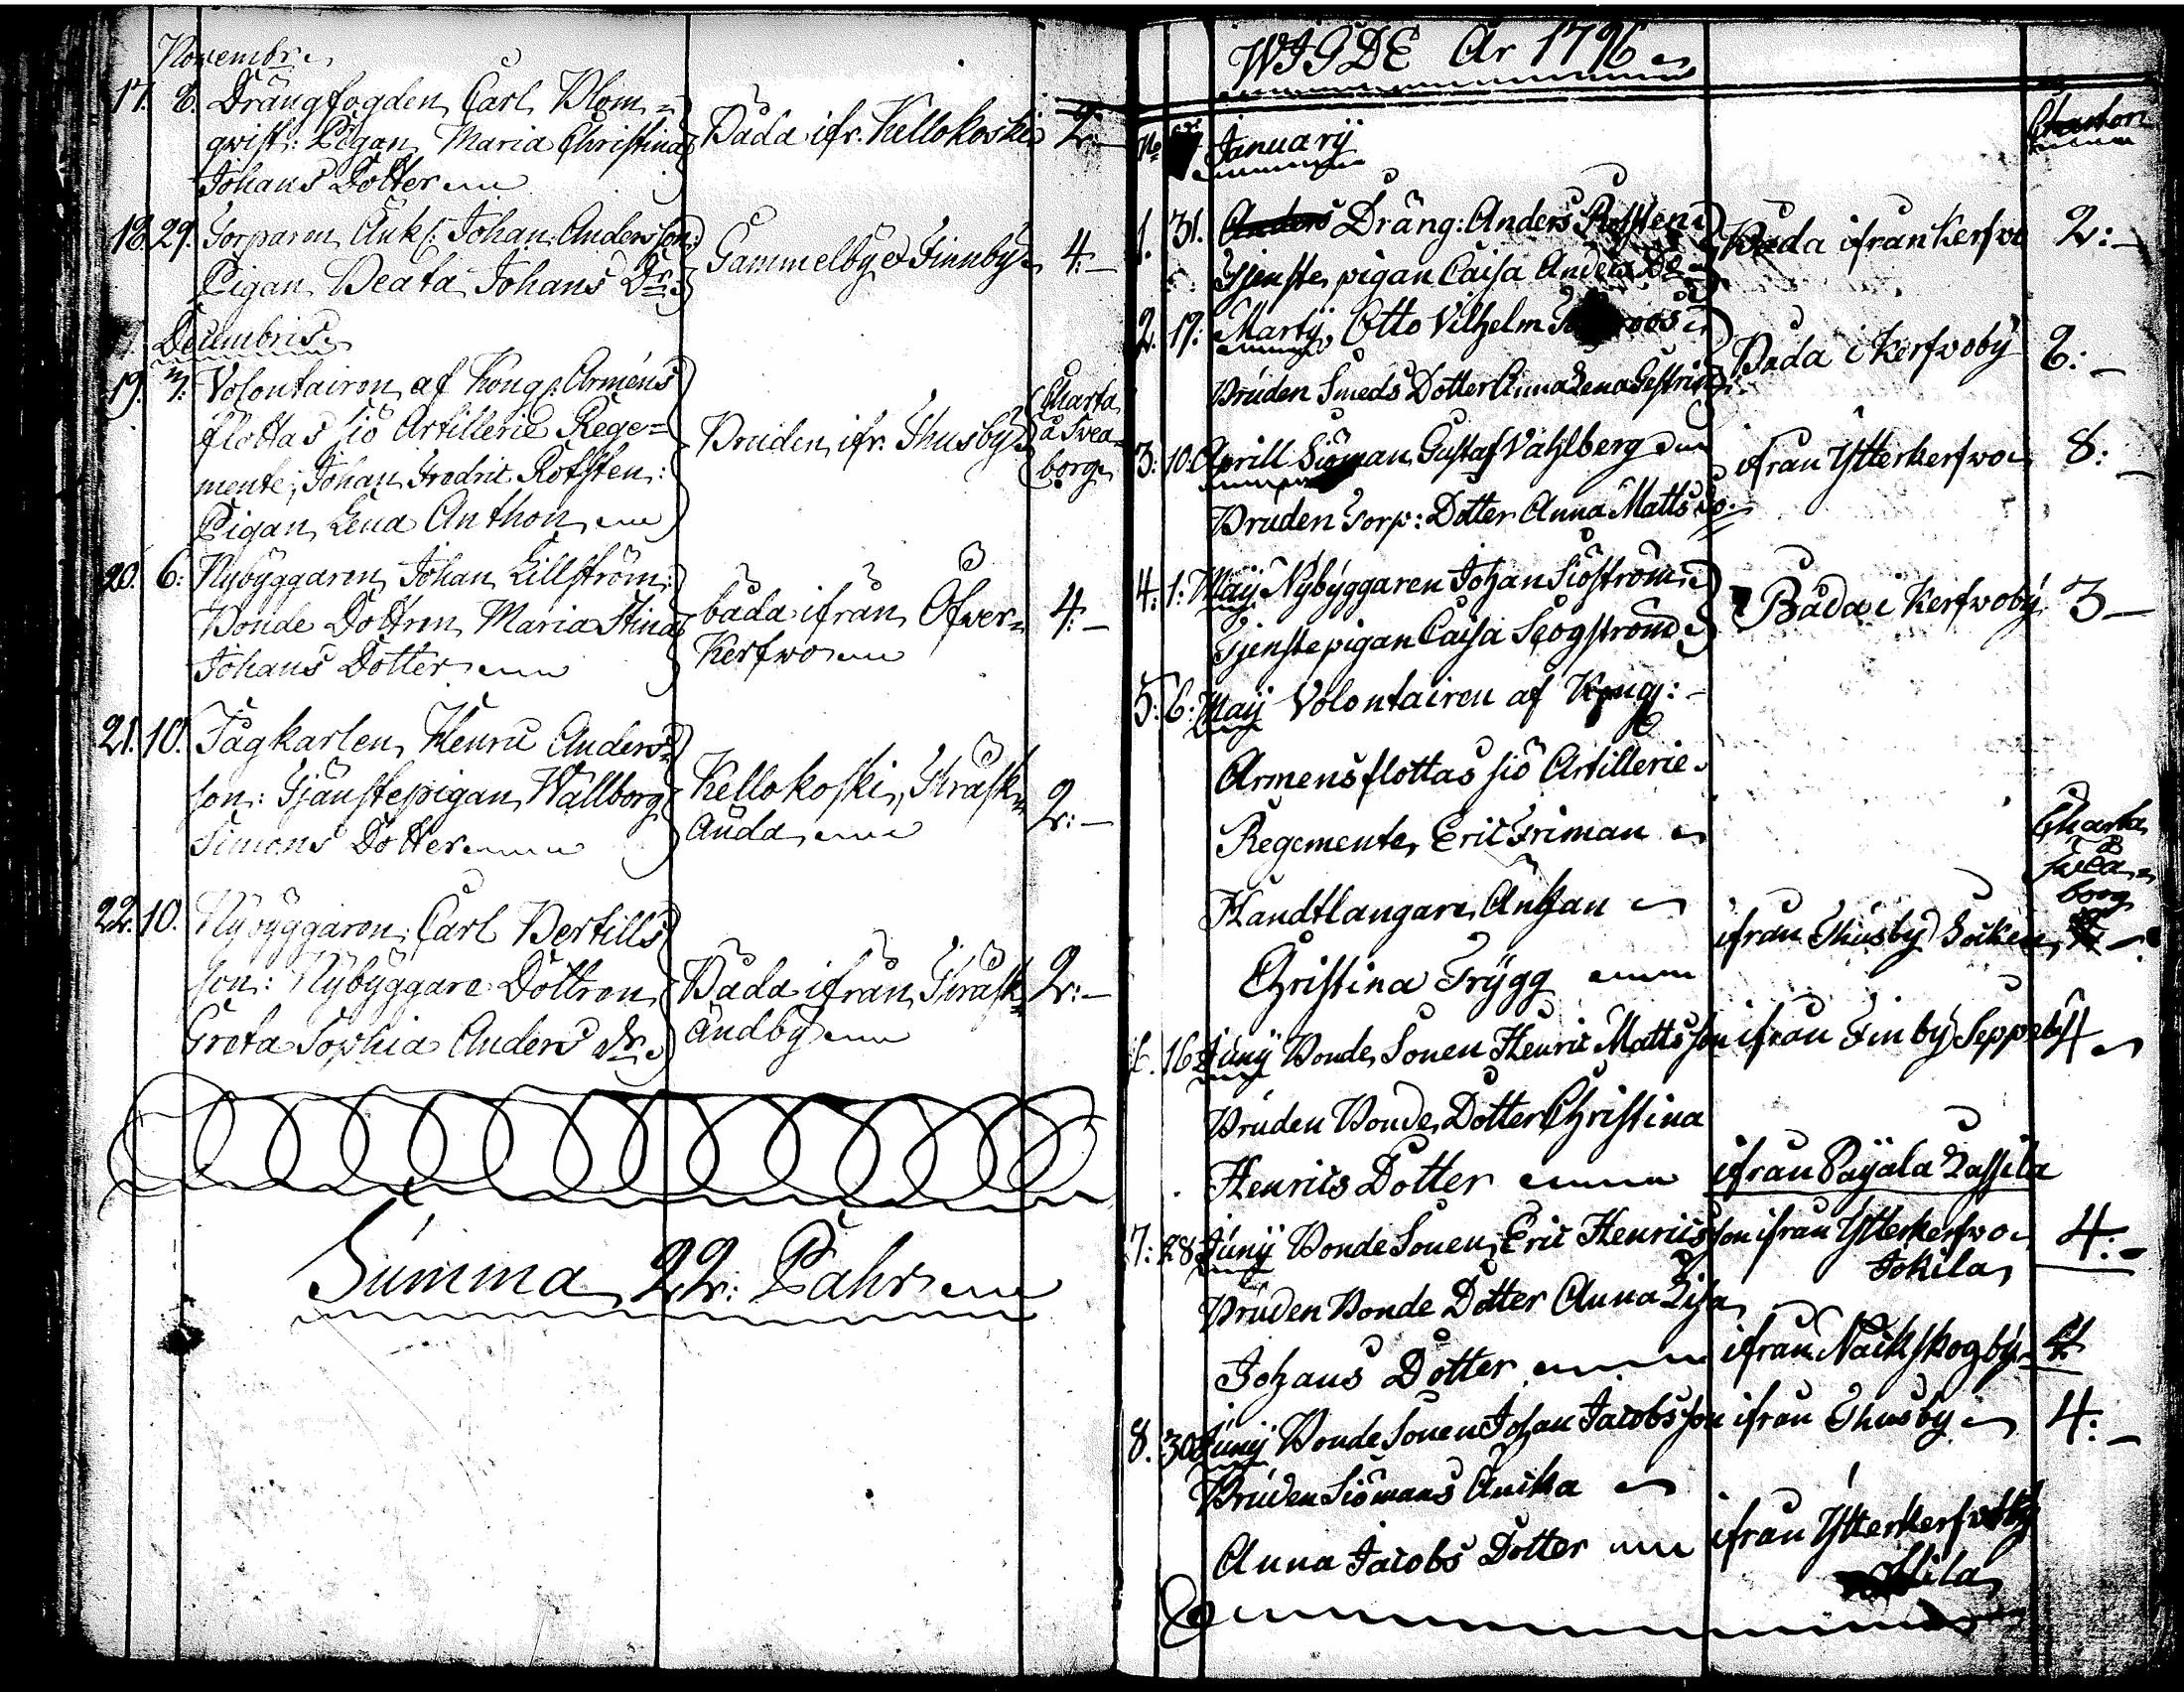 Novembr.
17. 8. Drängfogden Carl Blom= Båda ifr. Kellokoski 2:—
qwist: Pigan Maria Christina
Johans Dotter
18. 29. Torparen Änkl: Johan Andersson: Gammelby et Finnby 4:—
Pigan Beata Johans Dr.
Decembris
19. Volontairen af Kongl: Arméns Charta
flottas siö Artillerie Rege= Bruden ifr. Thusby å Svea=
mente, Johan Fredric Rotsten: borg
Pigan Lena Anthon
20. 6: Nybyggaren Johan Lillström: båda ifrån Öfver= 4:—
Bonde Dottren Maria Stina Kerfwo
Johans Dotter
21. 10. Tagkarlen Henric Anders=
son: Tjänstepigan Wallborg Kellokoski, Thräsk= 2:—
Simons Dotter ända
22. 10. Nybyggaren Carl Bertills
son: Nybyggare Dottren Båda ifrån Thräsk= 2:—
Greta Sophia Anders dr. ändby
Summa 22: Pahr
WIGDE År 1796
No Januarÿ Charton
1. 31. Anders Dräng: Anders Båda ifrån Kerfvo 2:—
Tjenste pigan Caisa Anders Dr
2. 17: Martÿ Otto Vilhelm Båda i Kerfvoby 2:—
Bruden Smeds Dotter Anna Lena
3: 10. Aprill Siöman Gustaf Vahlberg ifrån Ytterkerfwo 8:—
Bruden Torp: Dotter Anna Matts Do
4: 1: Maÿ Nybyggaren Johan Siöström Båda i Kerfvoby 3—
Tjenste pigan Caisa Scogström
5: 6: Maÿ Volontairen af Kongl:
Armens flottas siö Artillerie
Regemente, Eric Friman Charta
Handtlangare Änkan Svea=
borg
ifrån Thusby Socken
Christina Trygg
6. 16 Junÿ Bonde Sonen Henric Mattsson ifrån Finby Seppel 4
Bruden Bonde Dotter Christina
Henrics Dotter ifrån Paÿala Lassila
7: 28 Junÿ Bonde Sonen Eric Henricsson ifrån Ytterkerfvo 4:—
Jokila
Bruden Bonde Dotter Anna Lisa
Johans Dotter ifrån Näckskogby 4
8. 30 Junÿ Bonde Sonen Johan Jacobsson ifrån Thusby 4:—
Bruden Siömans Änka
Anna Jacobs Dotter ifrån Ytterkerfvo